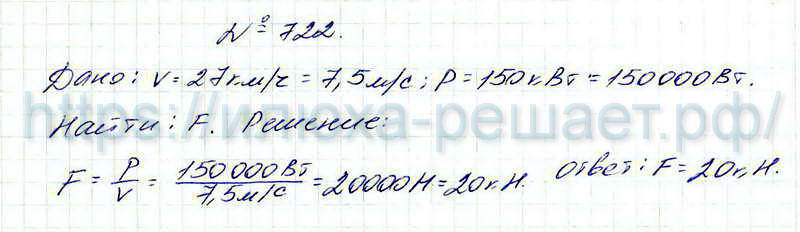 № 722.
Дано: v = 27км/ч = 7,5м/с; P = 150кВт = 150000Вт.
https://илюха-решает.рф/
Найти: F. Решение:
F = P/v = 150000Вт/7,5м/с = 20000Н = 20кН. Ответ: F = 20кН.